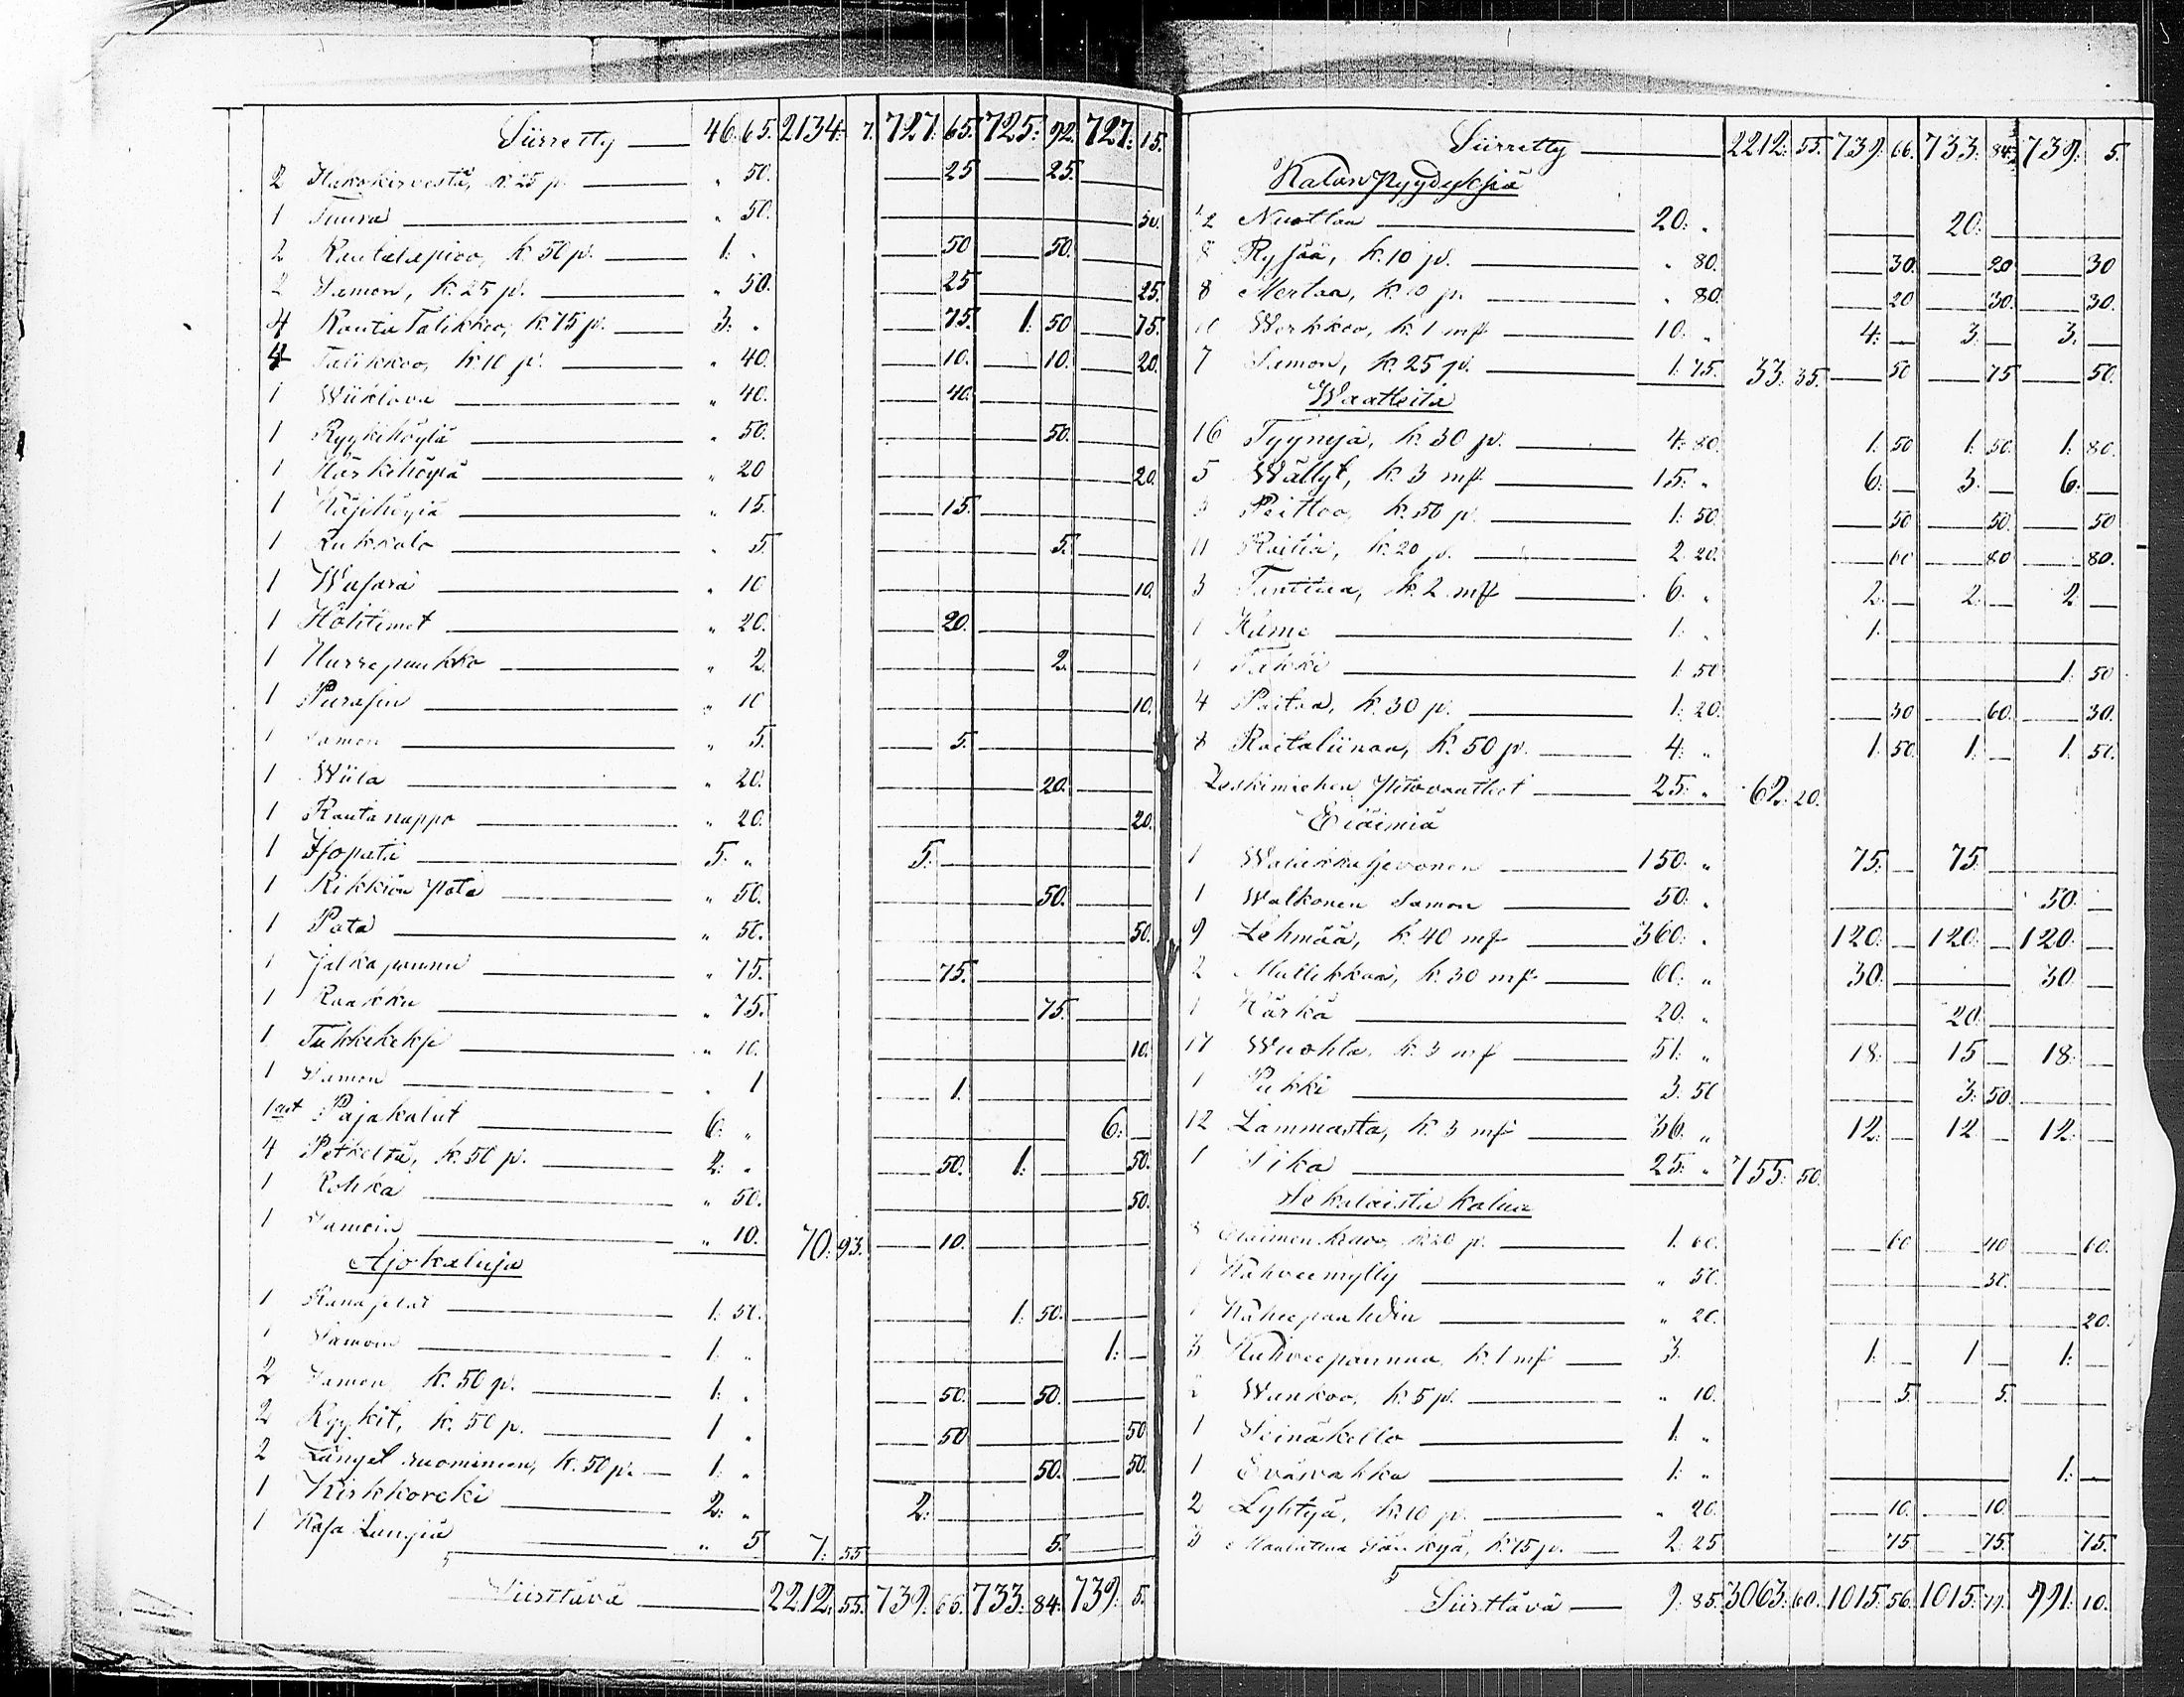 Siirretty — 46. 65. 2134: 7. 727. 65. 725: 92. 727: 15.
2 Hakokirvestä, k. 25 p. — „ 50. 25 25.
1 Tuura — „ 50. 50.
2 Rautalapioo, k. 50 p. — 1: „ 50 50.
2 Samon, k. 25 p. — „ 50. 25 25.
4 Rauta Talikkoo, k. 75 p. — 3: „ 75. 1: 50 75.
4 Talikkoo, k. 10 p. — „ 40. 10. 10. 20.
1 — „ 40. 40.
1 Ryykihöylä — „ 50. 50.
1 Härkihöylä — „ 20 20.
1 — „ 15. 15.
1 — „ 5. 5.
1 Wasara — „ 10 10.
1 Hohtimet — „ 20. 20.
1 — „ 2. 2.
1 Purasin — „ 10 10.
1 Samon — „ 5. 5.
1 Wiila — „ 20. 20.
1 Rautanappo — „ 20. 20.
1 Isopata — 5. „ 5.
1 Pata — „ 50. 50.
1 Pata — „ 50. 50.
1 Jalkapannu — „ 75. 75.
1 — „ 75. 75.
1 Tukkikeksi — „ 10. 10.
1 Samon — „ 1 1.
Pajakalut — 6: „ 6:
4 Petkeltä, k. 50 p. — 2: „ 50. 1: 50.
1 — „ 50. 50.
1 Samoin — „ 10. 70: 93. 10.
Ajokaluja
1 — 1: 50. 1: 50.
1 Samoin — 1. „ 1:
2 Samon k. 50 p. — 1: „ 50. 50.
2 Ryykit, k. 50 p. — 1 „ 50 50
2 Länget k. 50 p. — 1: „ 50. 50.
1 Kirkkoreki — 2: „ 2:
1 — „ 5 7: 55 5.
Siirttävä — 2212: 55. 739: 66. 733: 84. 739: 5.
Siirretty — 2212: 55. 739: 66. 733: 84. 739: 5.
Kalanpyydyksiä
Nuottaa — 20: „ 20:
8 Rysää, k. 10 p. — „ 80. 30. 20 30
8 Mertaa, k. 10 p. — „ 80. 20 30. 30.
10 Werkkoo, k. 1 mf — 10: „ 4: 3. 3.
7 Samon, k. 25 p. — 1: 75. 33: 35. 50 75 50.
Waatteita
16 Tyynyjä, k. 30 p. — 4: 80. 1: 50 1: 50. 1: 80.
5 Wällyt, k. 3 mf. — 15: „ 6: 3. 6:
3 Peittoo, k. 50 p. — 1: 50. 50 50. 50
11 Raitia, k. 20 p. — 2. 20. 60 80 80.
3 k. 2 mf — 6: „ 2. 2. 2
1 Hame — 1: „ 1:
1 Takki — 1: 50 1: 50
4 Paitaa, k. 30 p. — 1: 20. 30 60. 30.
8 k. 50 p. — 4: „ 1: 50. 1. 1: 50.
Leskimiehen Pitovaatteet — 25: „ 62. 20.
Eläimiä
1 — 150: „ 75: 75.
1 Walkonen Samon — 50: „ 50.
9 Lehmää, k. 40 mf — 360: „ 120: 120. 120.
2 Mullikkaa, k. 30 mf — 60: „ 30. 30.
1 Härkä — 20: „ 20.
17 Wuohta, k. 3 mf — 51: „ 18: 15 18:
1 Pukki — 3: 50 3: 50.
12 Lammasta, k. 3 mf — 36. „ 12: 12 12:
1 Sika — 25: „ 755: 50.
Sekalaista kalua
k. 20 p. — 1: 60. 60 40 60.
1 Kahveemylly — „ 50. 50.
1 — „ 20. 20.
3 Kahveepannua k. 1 mf — 3. 1: 1 1:
2 k. 5 p. — „ 10. 5. 5.
1 Seinäkello — 1: „
1 Eväwakka — 1: „ 1:
2 Lyhtyä, k. 10 p. — „ 20. 10. 10.
3 k. 75 p. — 2: 25 75 75. 75.
Siirttävä — 9: 85. 3063: 60. 1015: 56. 1015: 991: 10.